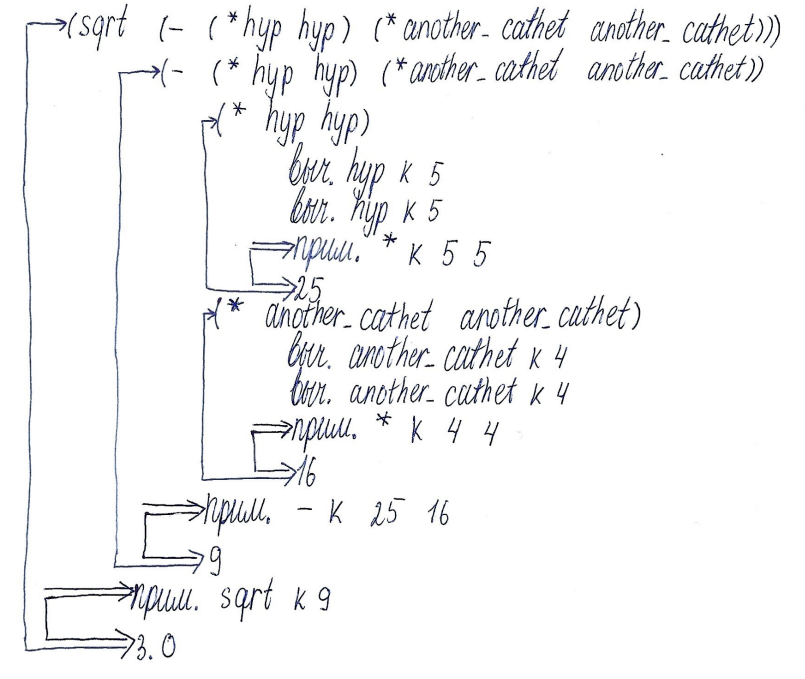 (sqrt (- (* hyp hyp) (* another_cathet another_cathet)))
(- (* hyp hyp) (* another_cathet another_cathet))
(* hyp hyp)
выч. hyp к 5
выч. hyp к 5
прим. * к 5 5
25
(* another_cathet another_cathet)
выч. another_cathet к 4
выч. another_cathet к 4
прим. * к 4 4
16
прим. - к 25 16
9
прим. sqrt к 9
3.0